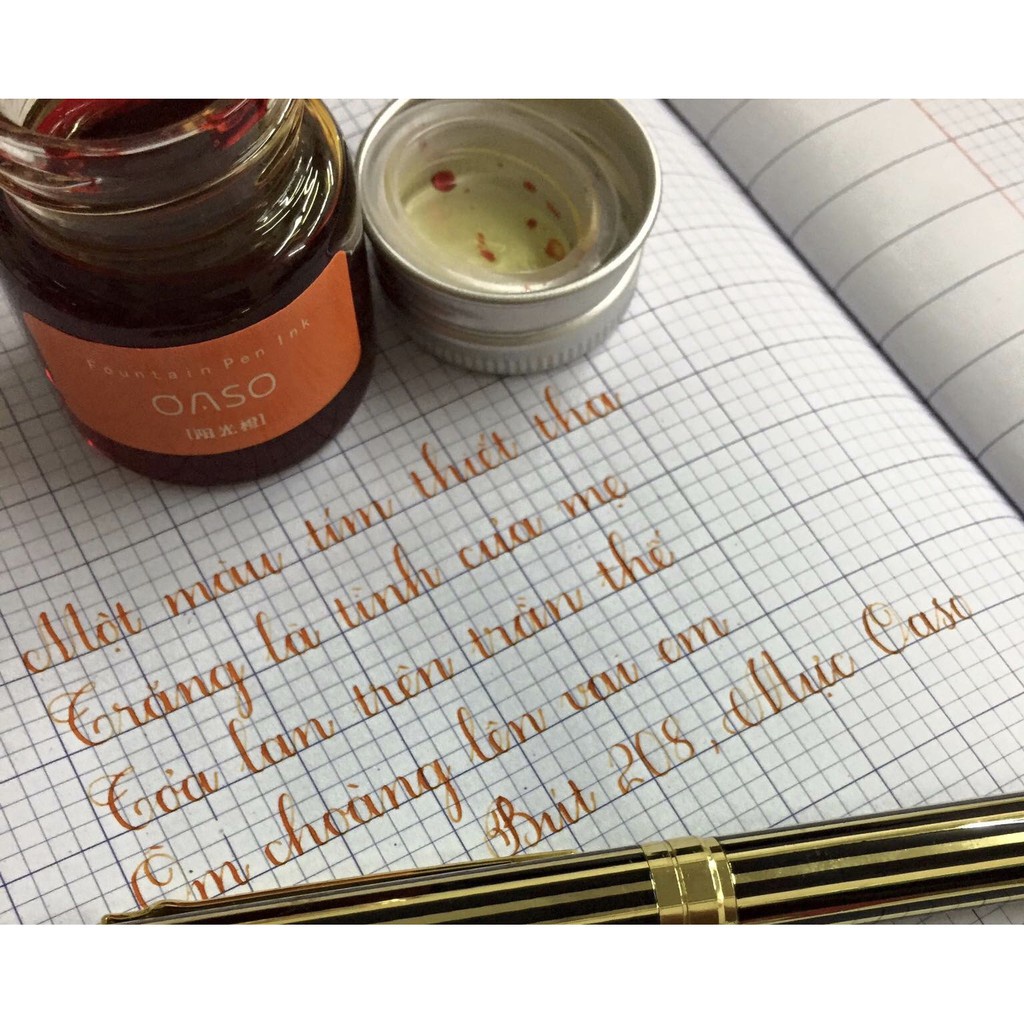 Fountain Pen Ink
OASO
[阳光橙]
Một màu tím thiết tha
Trắng là tình của mẹ
Tỏa lan trên trần thế
Ôm choàng lên vai em
Bút 208, Mực Oaso